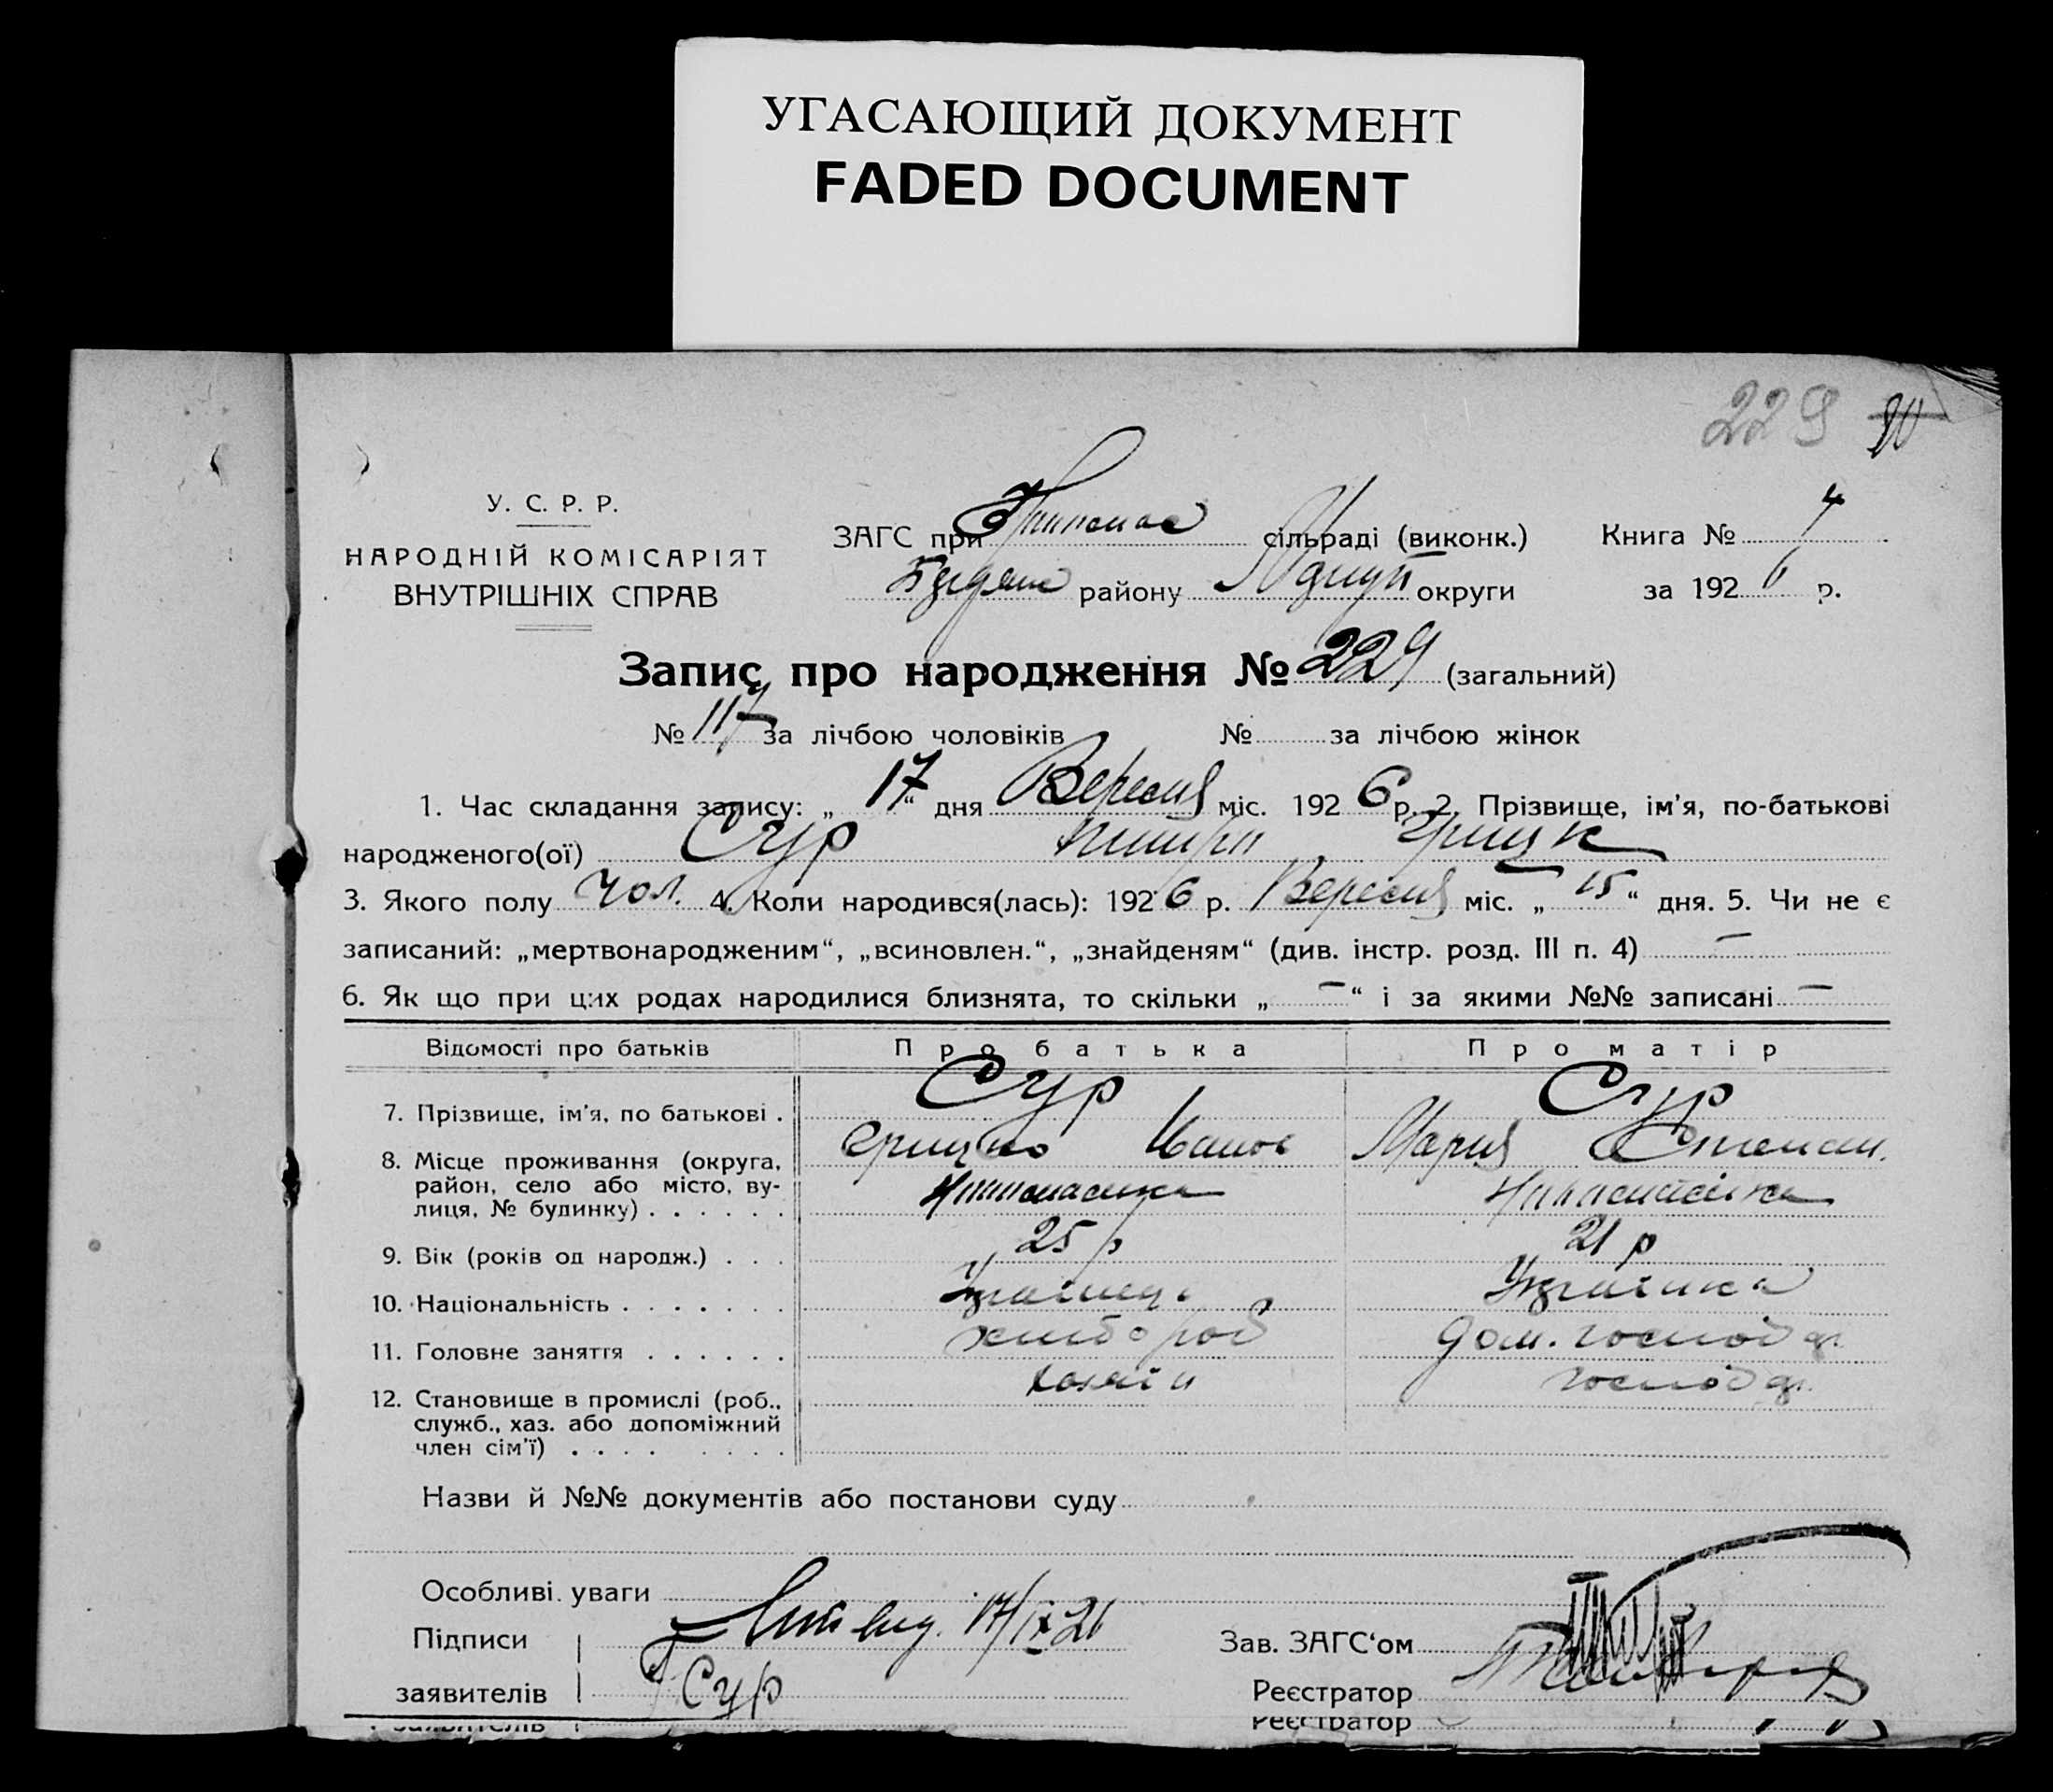 УГАСАЮЩИЙ ДОКУМЕНТ
FADED DOCUMENT
229
У. С. Р. Р.
НАРОДНІЙ КОМІСАРІЯТ
ВНУТРІШНІХ СПРАВ
ЗАГС при сільраді (виконк.)
району округи
Книга № 4
за 192 6 р.
Запис про народження № 229 (загальний)
№ 117 за лічбою чоловіків № за лічбою жінок
1. Час складання запису: „ 17 “ дня Вересня міс. 192 6 р. 2. Прізвище, ім’я, по-батькові
народженого(ої) Сур Грицк
3. Якого полу чол. 4. Коли народився(лась): 192 6 р. Вересня міс. „ 15 “ дня. 5. Чи не є
записаний: „мертвонародженим“, „всиновлен.“, „знайденям“ (див. інстр. розд. III п. 4) —
6. Як що при цих родах народилися близнята, то скільки „ — “ і за якими №№ записані —
Відомості про батьків Про батька Про матір
7. Прізвище, ім’я, по батькові . Сур Сур
Грицько Іванов Мария Степан.
8. Місце проживання (округа,
район, село або місто, ву-
лиця, № будинку) . . . . . .
9. Вік (років од народж.) . . . 25 р 21 р
10. Національність . . . . . . . Українець Українка
11. Головне заняття . . . . . . хлібороб дом. господар.
12. Становище в промислі (роб.,
служб., хаз. або допоміжний
член сім’ї) . . . . . . . . хазяїн господар.
Назви й №№ документів або постанови суду
Особливі уваги
Підписи 17/IX 26
заявителів Г Сур
Зав. ЗАГС‘ом
Реєстратор
заявителів
Реєстратор